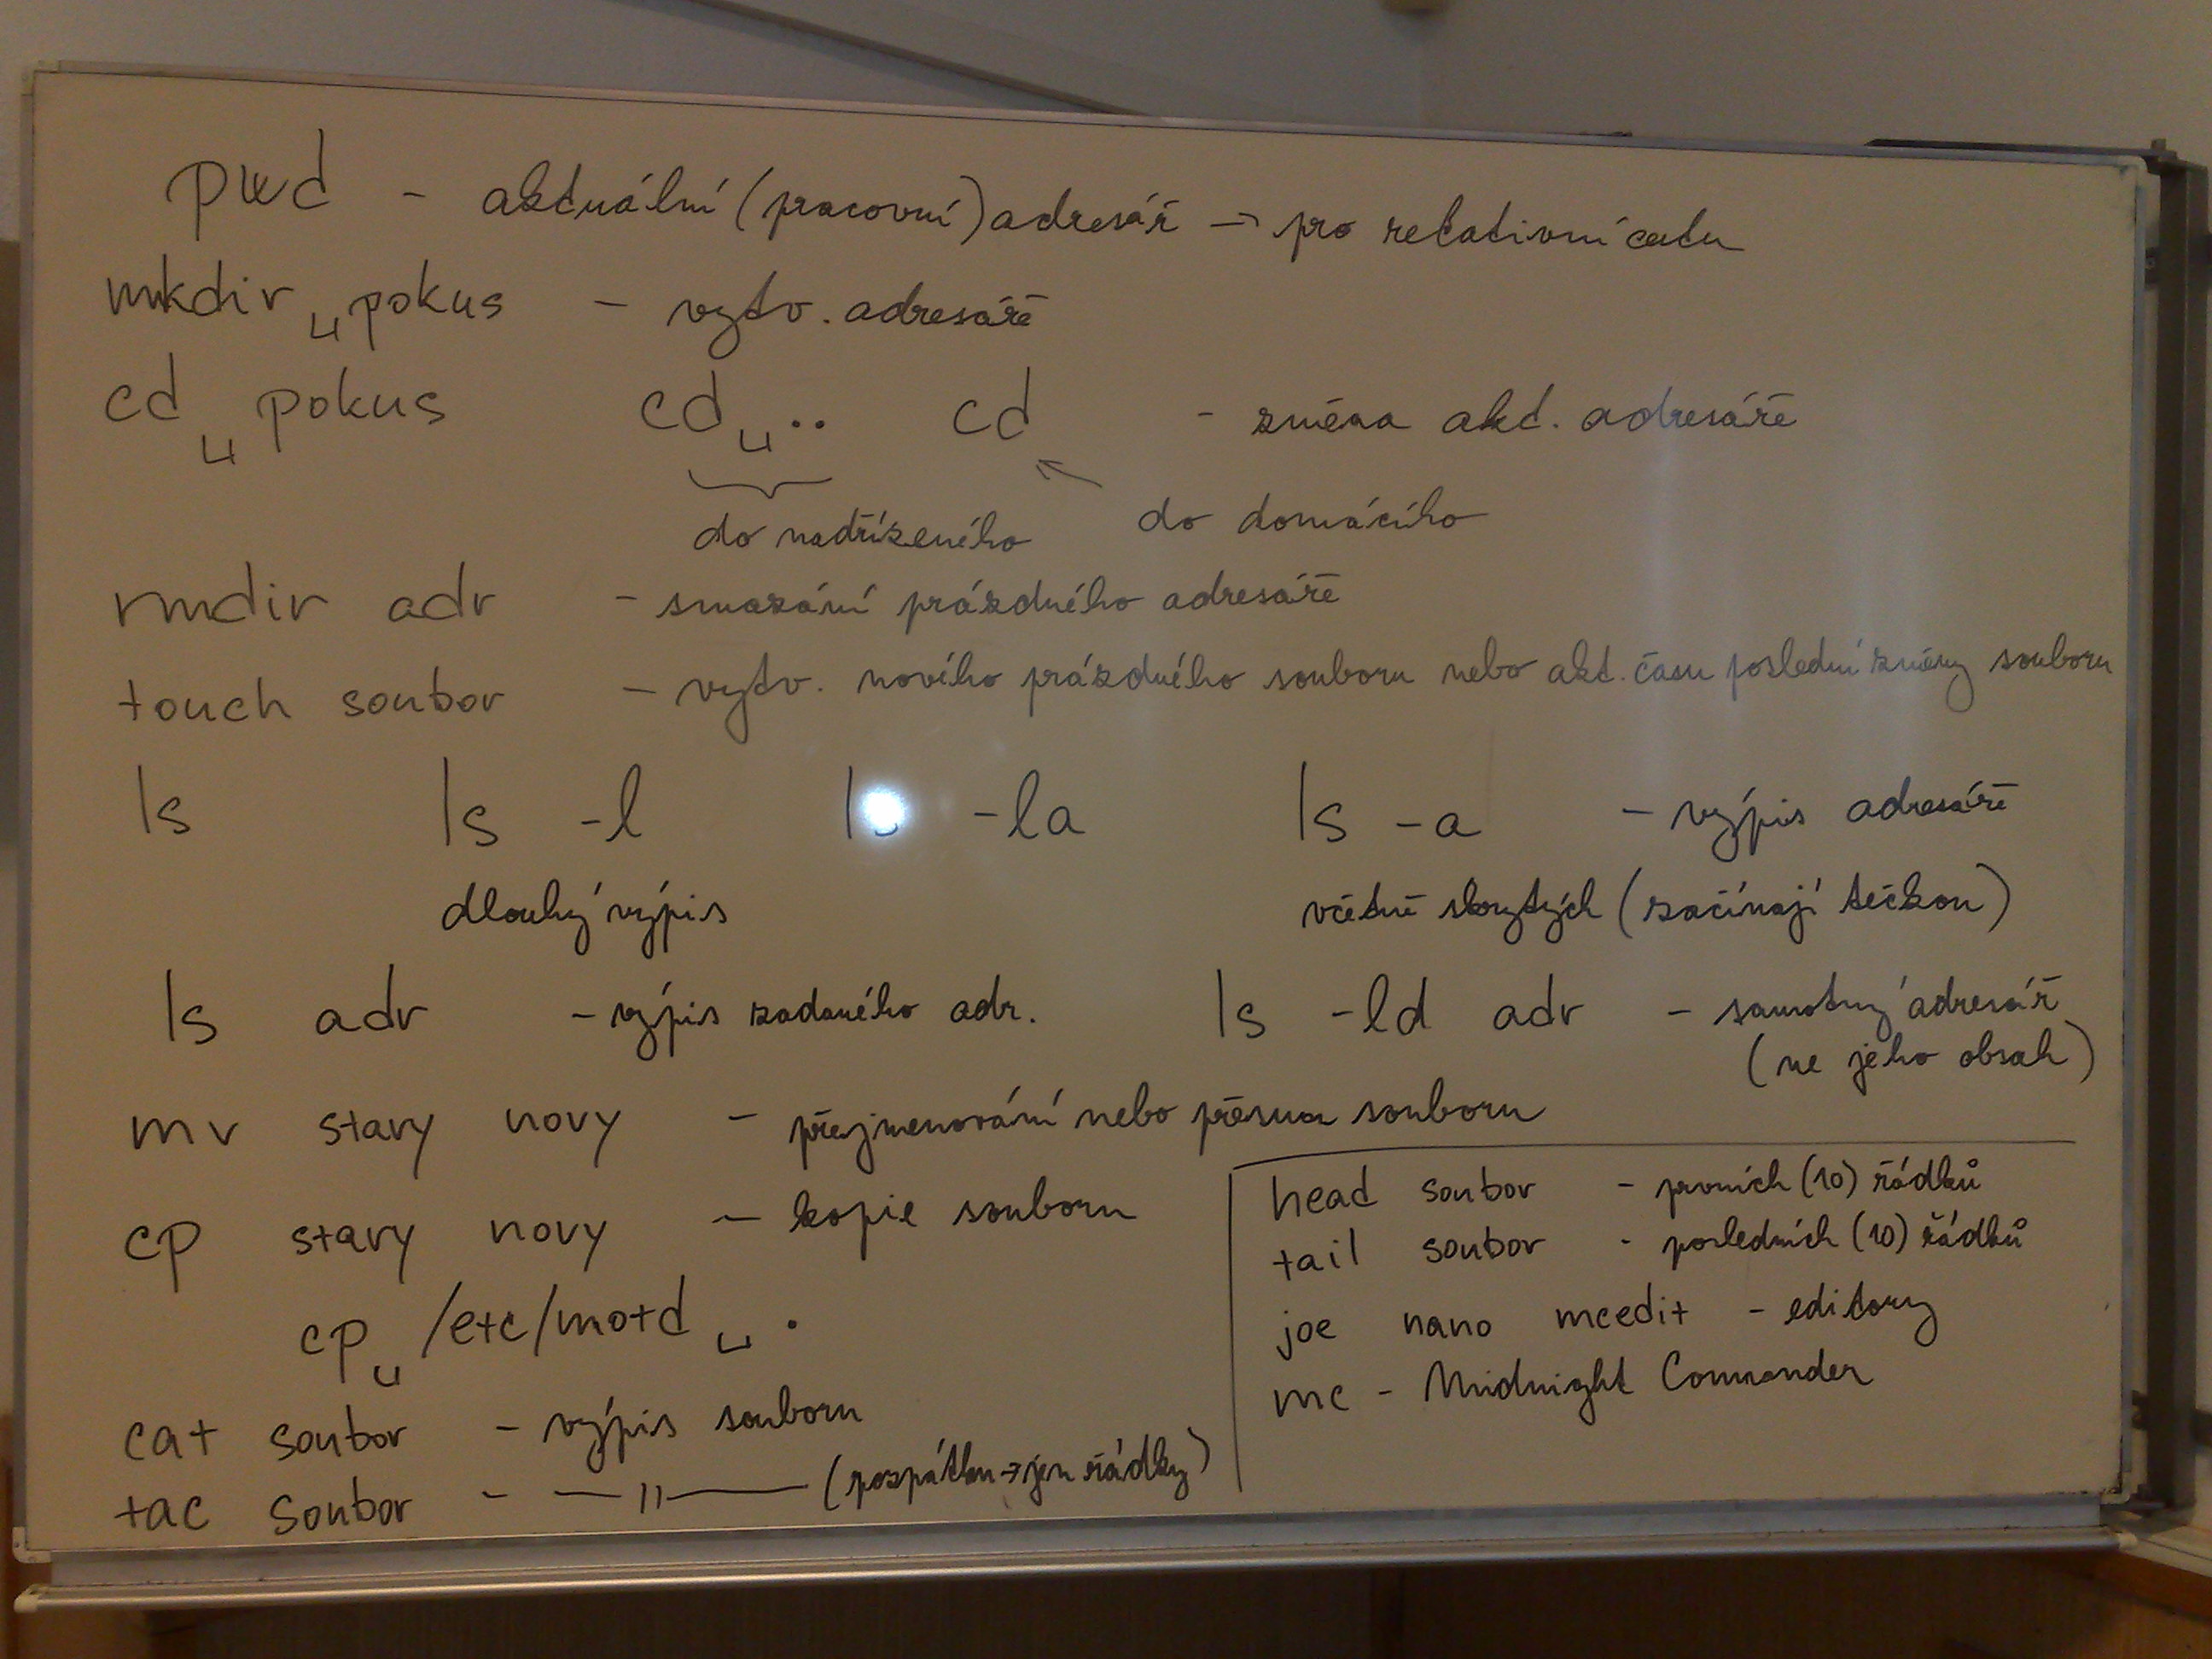 pwd - aktuální (pracovní) adresář → pro relativní cestu
mkdir ␣ pokus - vytv. adresáře
cd ␣ pokus cd ␣ .. cd - změna akt. adresáře
do nadřízeného do domácího
rmdir adr - smazání prázdného adresáře
touch soubor - vytv. nového prázdného souboru nebo akt. času poslední změny souboru
ls ls -l ls -la ls -a - výpis adresáře
dlouhý výpis včetně skrytých (začínají tečkou)
ls adr - výpis zadaného adr. ls -ld adr - samotný adresář
(ne jeho obsah)
mv stary novy - přejmenování nebo přesun souboru
cp stary novy - kopie souboru
cp ␣ /etc/motd ␣ .
cat soubor - výpis souboru
tac soubor - —— 〃 —— (pozpátku → jen řádky)
head soubor - prvních (10) řádků
tail soubor - posledních (10) řádků
joe nano mcedit - editory
mc - Midnight Commander